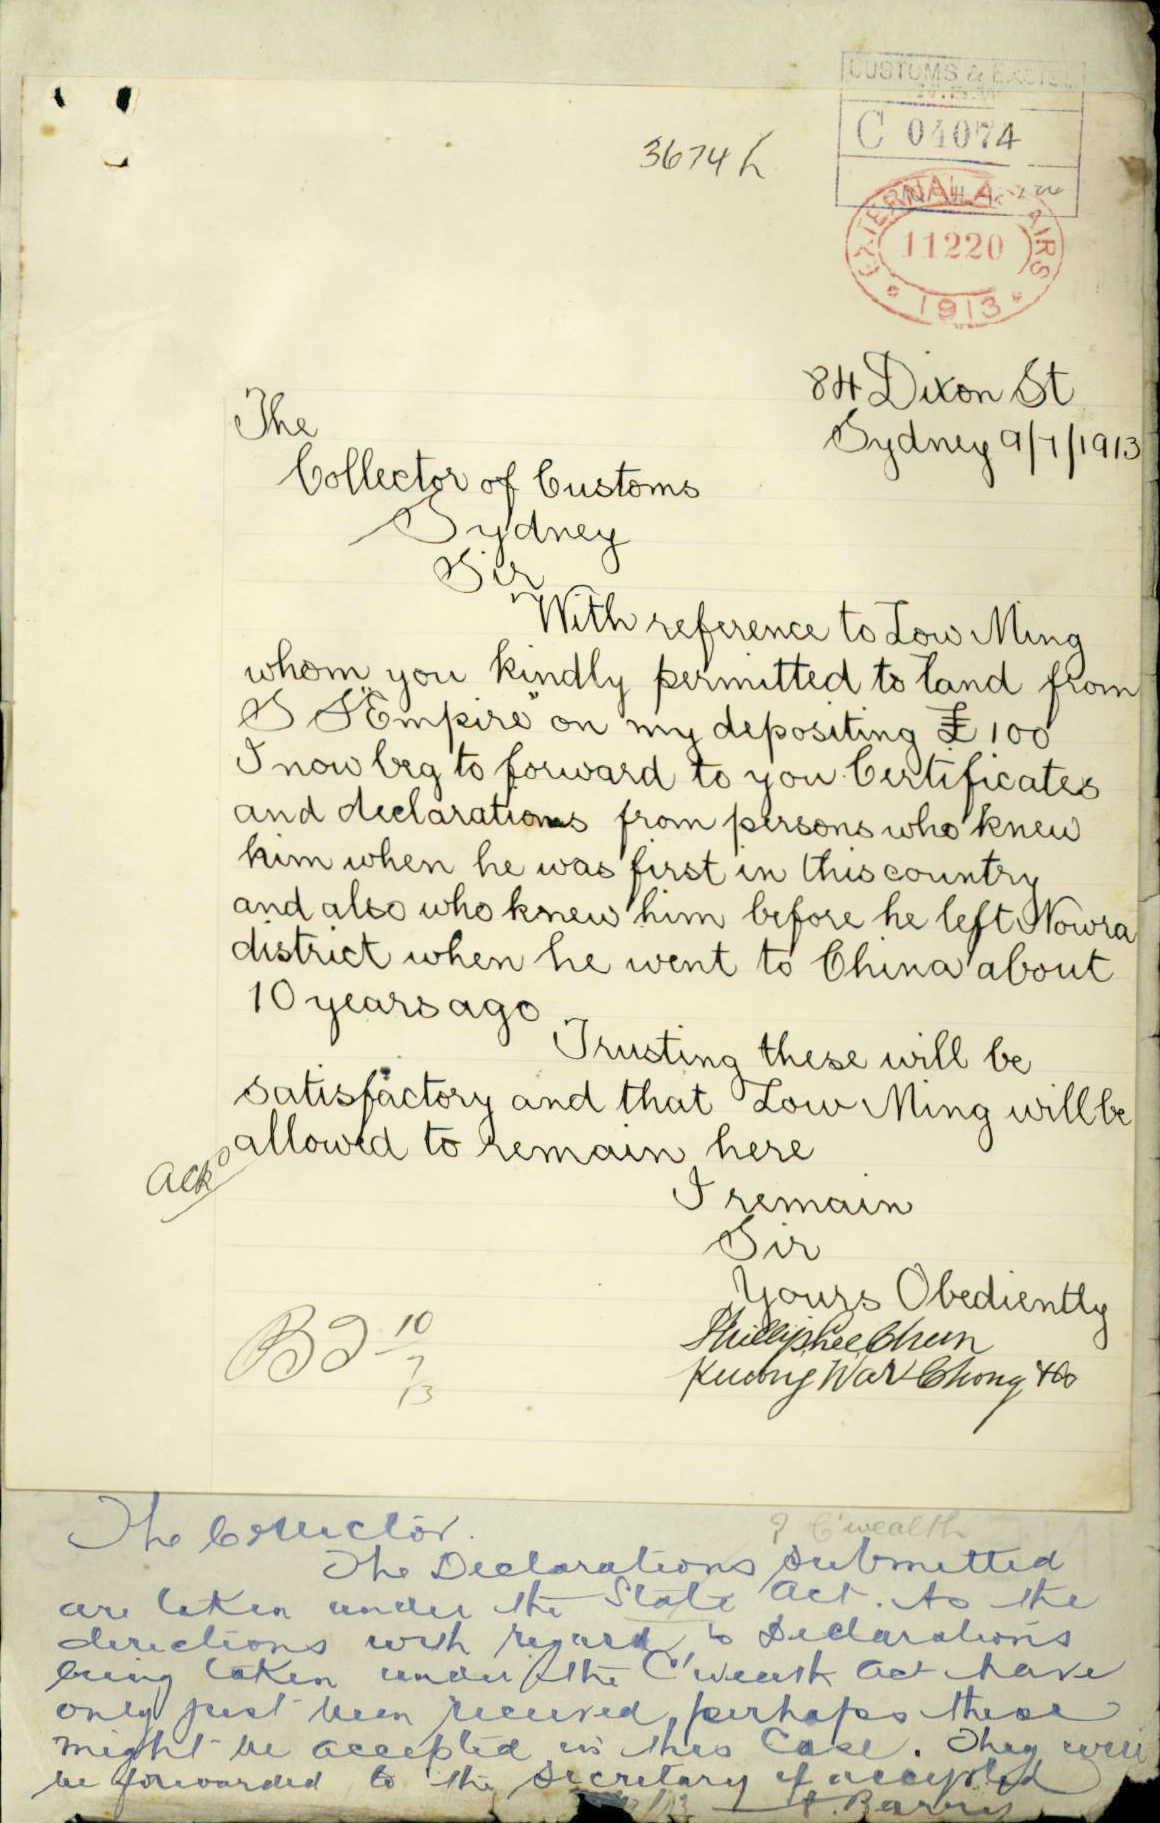 CUSTOMS & EXCISE
C 04074
3674
EXTERNAL AFFAIRS
11220
1913
84 Dixon St
Sydney 9/7/1913
The
Collector of Customs
Sydney
Sir
With reference to Low Ming
whom you kindly permitted to land from
S S "Empire" on my depositing £100
I now beg to forward to you Certificates
and declarations from persons who knew
him when he was first in this country
and also who knew him before he left Nowra
district when he went to China about
10 years ago
Trusting these will be
satisfactory and that Low Ming will be
allowed to remain here
Ackd
I remain
Sir
Yours Obediently
Phillip Lee Chun
Kwong War Chong & Co
10
7
13
The Collector.
? C'wealth
The Declarations submitted
are taken under the State Act. As the
directions with regard to Declarations
being taken under the C'wealth Act have
only just been received, perhaps these
might be accepted in this Case. They will
be forwarded to the Secretary if accepted
Barry